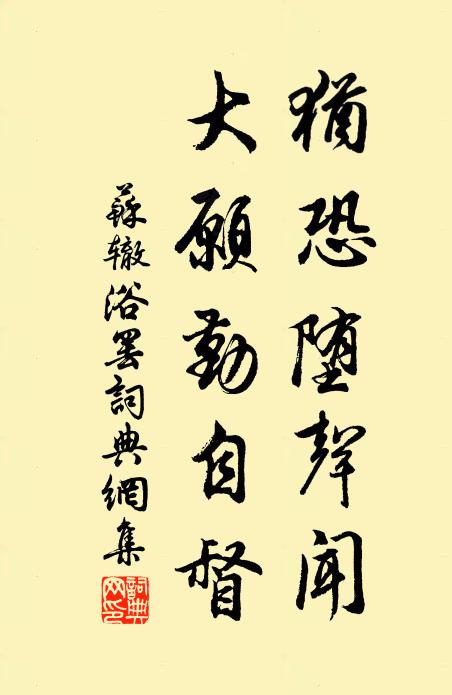 猶恐堕聲聞
大願勤自督
蘇辙浴罢詞典網集
詞典网印